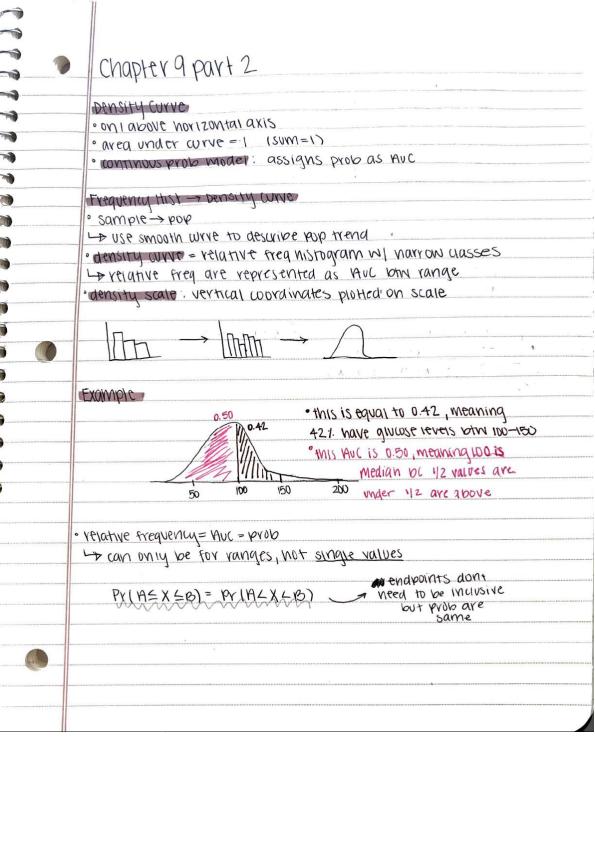 Chapter 9 part 2
Density Curve
• on/above horizontal axis
• area under curve = 1 (sum=1)
• continous prob model: assigns prob as AUC
Frequency Hist → Density curve
• sample → pop
↳ use smooth curve to describe pop trend
• density curve = relative freq histogram w/ narrow classes
↳ relative freq are represented as AUC btw range
• density scale: vertical coordinates plotted on scale
Example
0.50
0.42
50 100 150 200
• this is equal to 0.42, meaning
42% have glucose levels btw 100-150
• this AUC is 0.50, meaning 100 is
median bc 1/2 values are
under 1/2 are above
• relative frequency = AUC = prob
↳ can only be for ranges, not single values
Pr(A ≤ X ≤ B) = Pr(A < X < B)
endpoints dont
need to be inclusive
but prob are
same